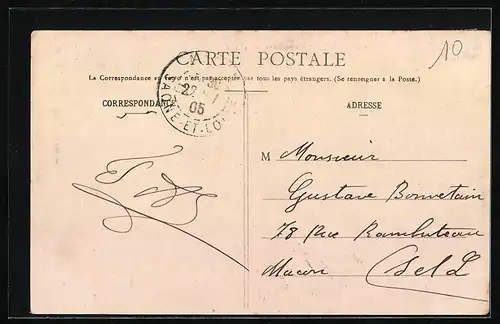 10
CARTE POSTALE
La Correspondance au recto n'est pas acceptée par tous les pays étrangers. (Se renseigner à la Poste.)
CORRESPONDANCE
ADRESSE
22
05
SAONE-ET-LOIRE
M Monsieur
Gustave Bonnetain
78 Rue Rambuteau
Macon S et L